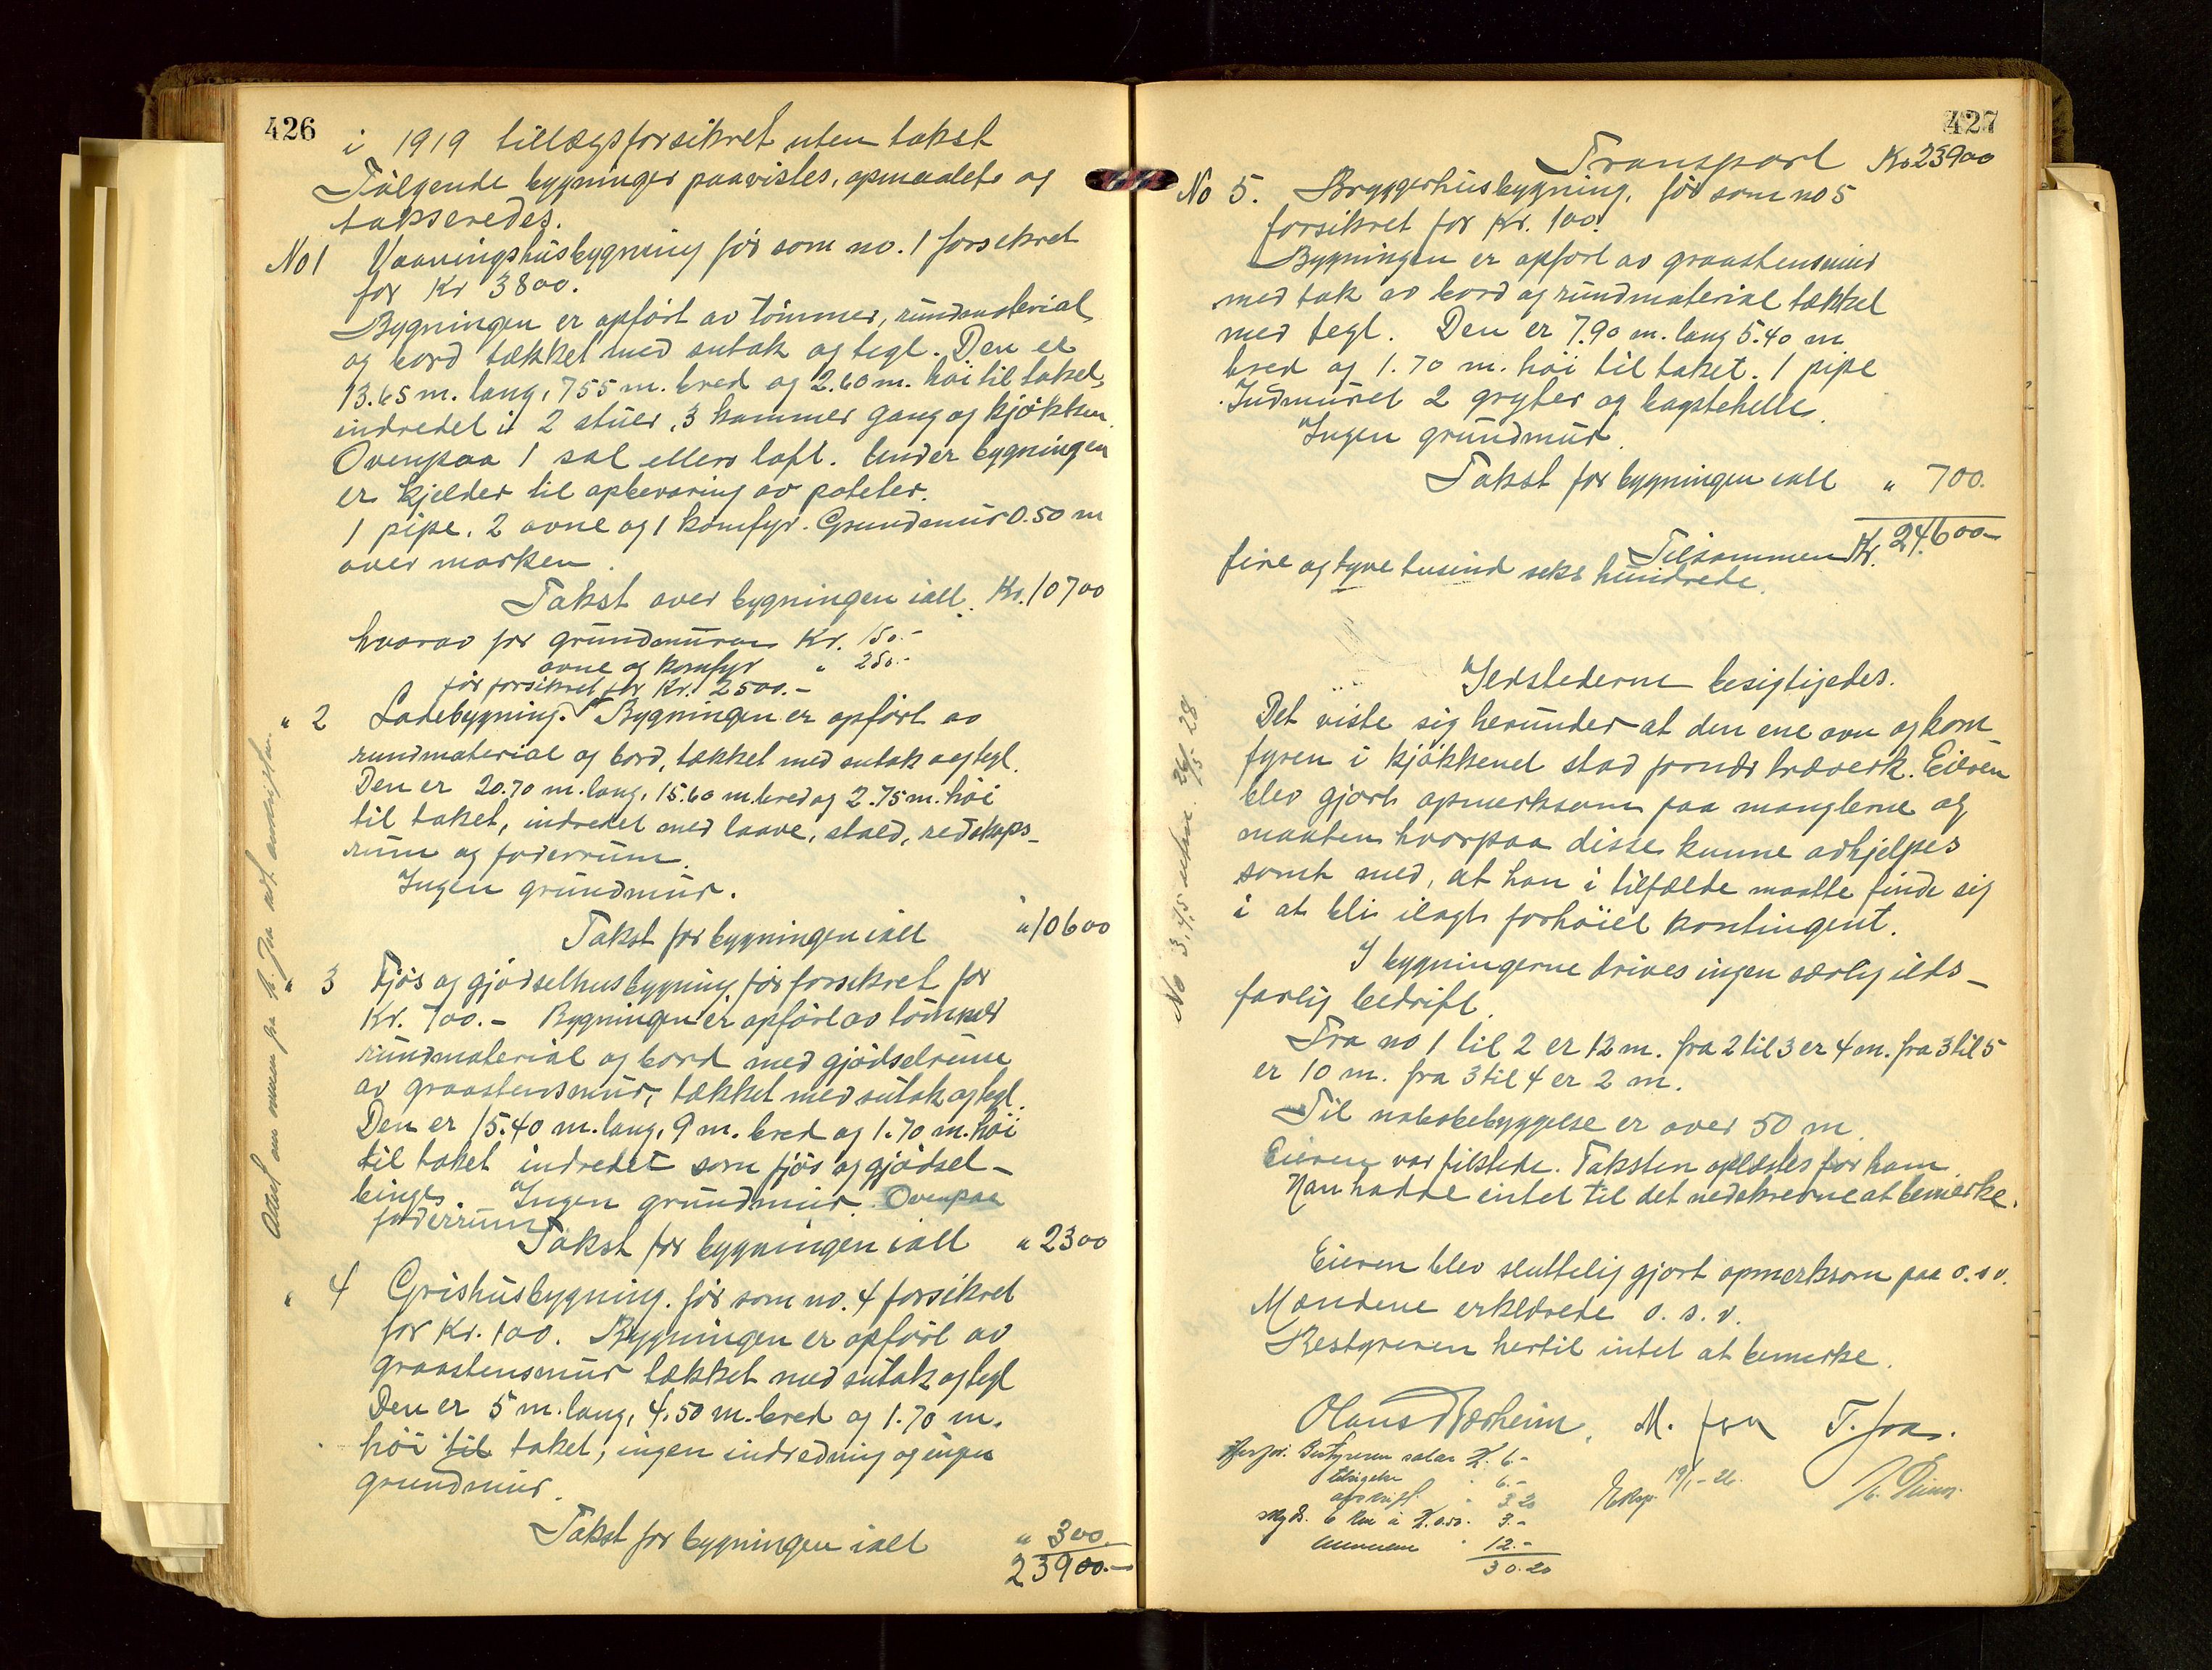 426
i 1919 tillægsforsikret uten takst
Følgende bygninger paavistes, opmaaltes og
takseredes.
No 1 Vaaningshusbygning før som no. 1 forsikret
for Kr 3800.
Bygningen er opført av tømmer, rundmaterial
og bord tækket med sutak og tegl. Den er
13.65 m. lang, 755 m. bred og 2.60 m. høi til taket,
indredet i 2 stuer, 3 kammer gang og kjøkken.
Ovenpaa 1 sal ellers loft. Under bygningen
er kjelder til opbevaring av poteter.
1 pipe. 2 ovne og 1 komfyr. Grundmur 0.50 m
over marken.
Takst over bygningen ialt. Kr. 10700
hvorav for grundmuren Kr. 150.-
ovne og komfyr " 250.-
før forsikret for Kr. 2500.-
" 2 Ladebygning. Bygningen er opført av
rundmaterial og bord, tækket med sutak og tegl.
Den er 20.70 m. lang, 15.60 m. bred og 2.75 m. høi
til taket, indredet med laave, stald, redskaps-
rum og foderrum.
Ingen grundmur.
Takst for bygningen ialt " 10600
" 3 Fjøs og gjødselhusbygning før forsikret for
Kr. 700.- Bygningen er opført av tømmer
rundmaterial og bord med gjødselrum
av graastensmur, tækket med sutak og tegl.
Den er 15.40 m. lang, 9 m. bred og 1.70 m. høi
til taket indredet som fjøs og gjødsel-
binge. Ingen grundmur. Ovenpaa
foderrum
Takst for bygningen ialt " 2300
" 4 Grishusbygning. før som no. 4 forsikret
for Kr. 100. Bygningen er opført av
graastensmur tækket med sutak og tegl
Den er 5 m. lang, 4.50 m. bred og 1.70 m.
høi til taket, ingen indredning og ingen
grundmur.
Takst for bygningen ialt " 300.
23900.-
427
Transport Kr 23900
No 5. Bryggerhusbygning, før som no 5
forsikret for Kr. 100.
Bygningen er opført av graastensmur
med tak av bord og rundmaterial tækket
med tegl. Den er 7.90 m. lang 5.40 m
bred og 1.70 m. høi til taket. 1 pipe
Indmuret 2 gryter og bagstehelle.
Ingen grundmur.
Takst for bygningen ialt " 700.
Tilsammen Kr. 24600-
fire og tyve tusind seks hundrede.
Ildstederne besigtigedes.
Det viste sig herunder at den ene ovn og kom
fyren i kjøkkenet stod for nær træverk. Eieren
blev gjort opmerksom paa manglerne og
maaten hvorpaa disse kunne avhjelpes
samt med, at han i tilfælde maatte finde sig
i at bli ilagt forhøiet kontingent.
I bygningerne drives ingen særlig ilds-
farlig bedrift.
Fra no 1 til 2 er 12 m. fra 2 til 3 er 4 m. fra 3 til 5
er 10 m. fra 3 til 4 er 2 m.
Til nabobebyggelse er over 50 m.
Eieren var tilstede. Taksten oplæstes for ham.
Han hadde intet til det nedskrevne at bemerke.
Eieren blev sluttelig gjort opmerksom paa o.s.v.
Mændene erklærede o. s. v.
Bestyreren hertil intet at bemerke.
Olaus Nærheim. M. Joa T. Joa.
Bestyreren salær K. 6.-
" 6.-
avskrift " 3.20
skyds 6 km a K. 0.50. 3.-
" 12.-
30.20
Eksp. 19/1-26.